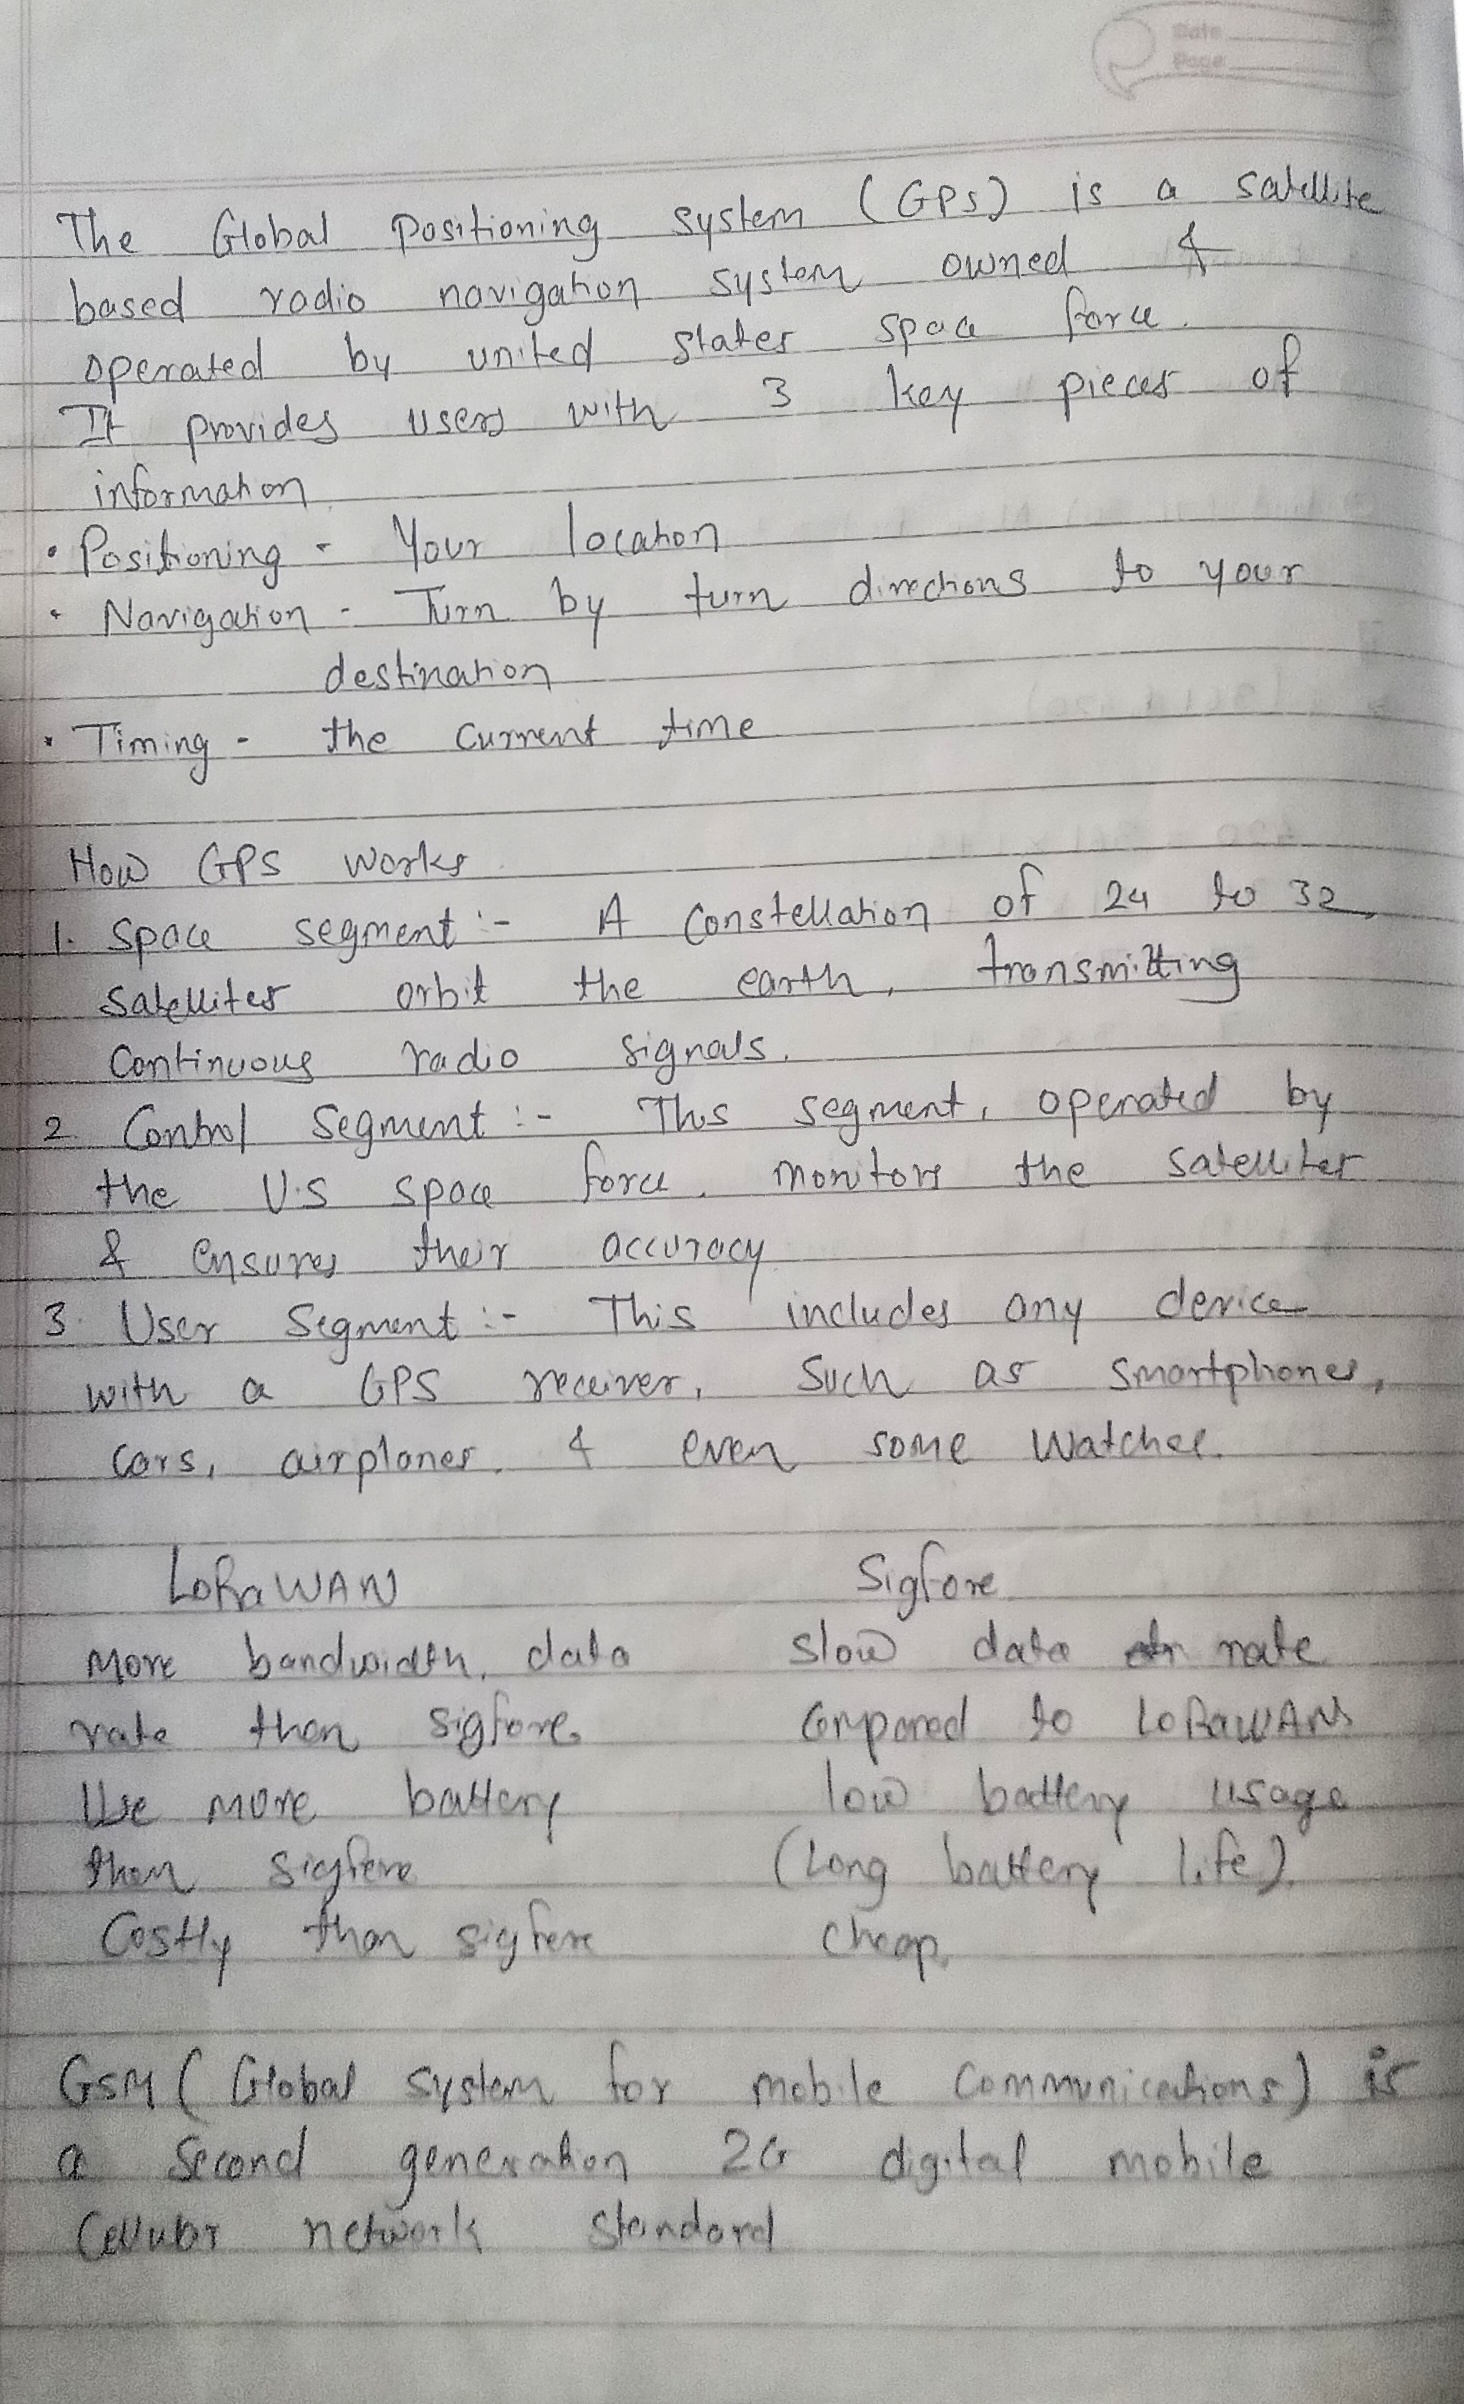 Date
Page
The Global Positioning system (GPS) is a satellite
based radio navigation system owned &
operated by united states space force.
It provides users with 3 key pieces of
information
• Positioning - Your location
• Navigation - Turn by turn directions to your
destination
• Timing - the current time
How GPS works
1. Space segment :- A Constellation of 24 to 32,
Satellites orbit the earth, transmitting
Continuous radio signals.
2. Control Segment :- This segment, operated by
the U.S space force, monitors the satellites
& ensures their accuracy
3. User Segment :- This includes any device
with a GPS receiver, Such as smartphones,
cars, airplanes, & even some watches.
LoRaWAN Sigfore
More bandwidth, data slow data rate
rate than sigfore. Compared to LoRaWANs
Use more battery low battery usage
than sigfore (Long battery life).
Costly than sigfore cheap.
GSM ( Global system for mobile Communications) is
a Second generation 2G digital mobile
Cellular network standard